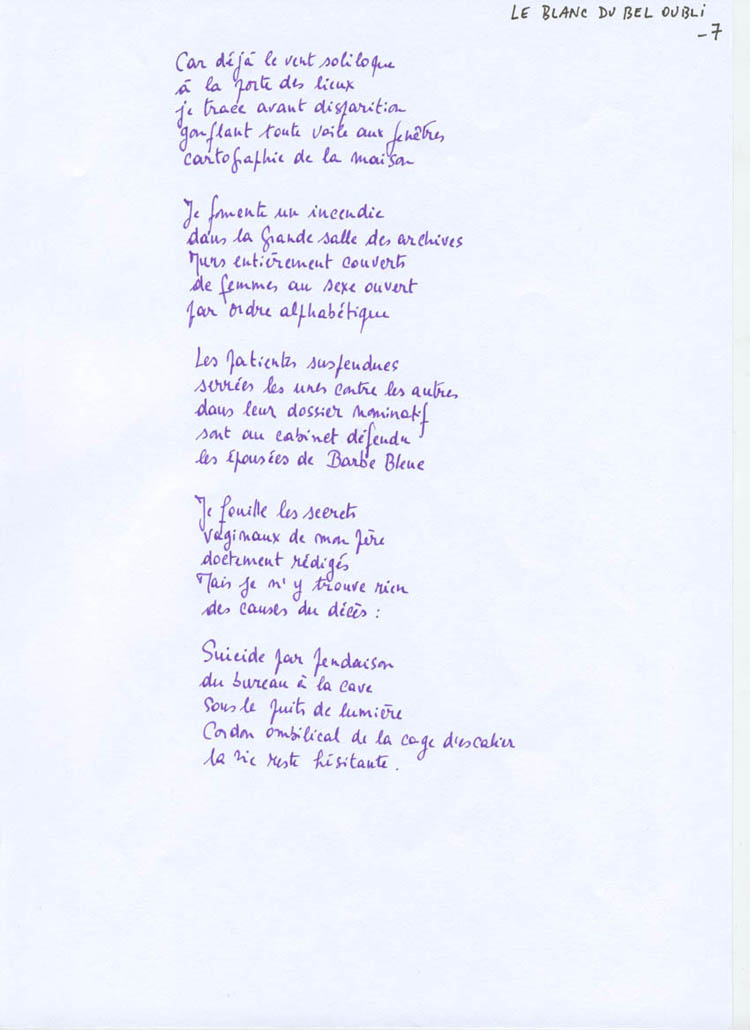 LE BLANC DU BEL OUBLI
-7
Car déjà le vent soliloque
à la porte des lieux
je trace avant disparition
gonflant toute voile aux fenêtres
cartographie de la maison
Je fomente un incendie
dans la Grande salle des archives
Murs entièrement couverts
de femmes au sexe ouvert
par ordre alphabétique
Les patientes suspendues
serrées les unes contre les autres
dans leur dossier nominatif
sont au cabinet défendu
les épousées de Barbe Bleue
Je fouille les secrets
vaginaux de mon père
doctement rédigés
Mais je n'y trouve rien
des causes du décès :
Suicide par pendaison
du bureau à la cave
Sous le puits de lumière
Cordon ombilical de la cage d'escalier
la vie reste hésitante.